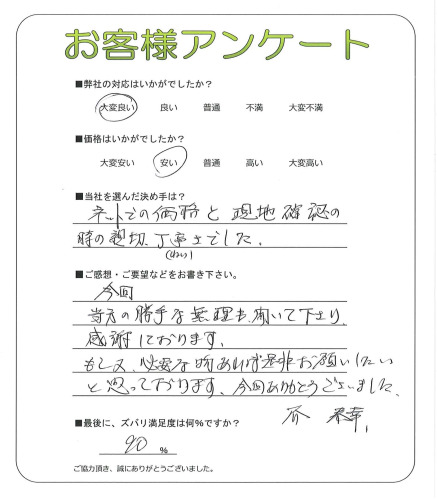 お客様アンケート
■弊社の対応はいかがでしたか?
大変良い 良い 普通 不満 大変不満
■価格はいかがでしたか?
大変安い 安い 普通 高い 大変高い
■当社を選んだ決め手は?
ネットでの価格と現地確認の
時の親切、丁寧さでした。
(ねい)
■ご感想・ご要望などをお書き下さい。
今回
当方の勝手な無理も聞いて下さり、
感謝しております。
もし又、必要な時あれば是非お願いしたい
と思っております。今回ありがとうございました。
■最後に、ズバリ満足度は何%ですか?
90 %
ご協力頂き、誠にありがとうございました。